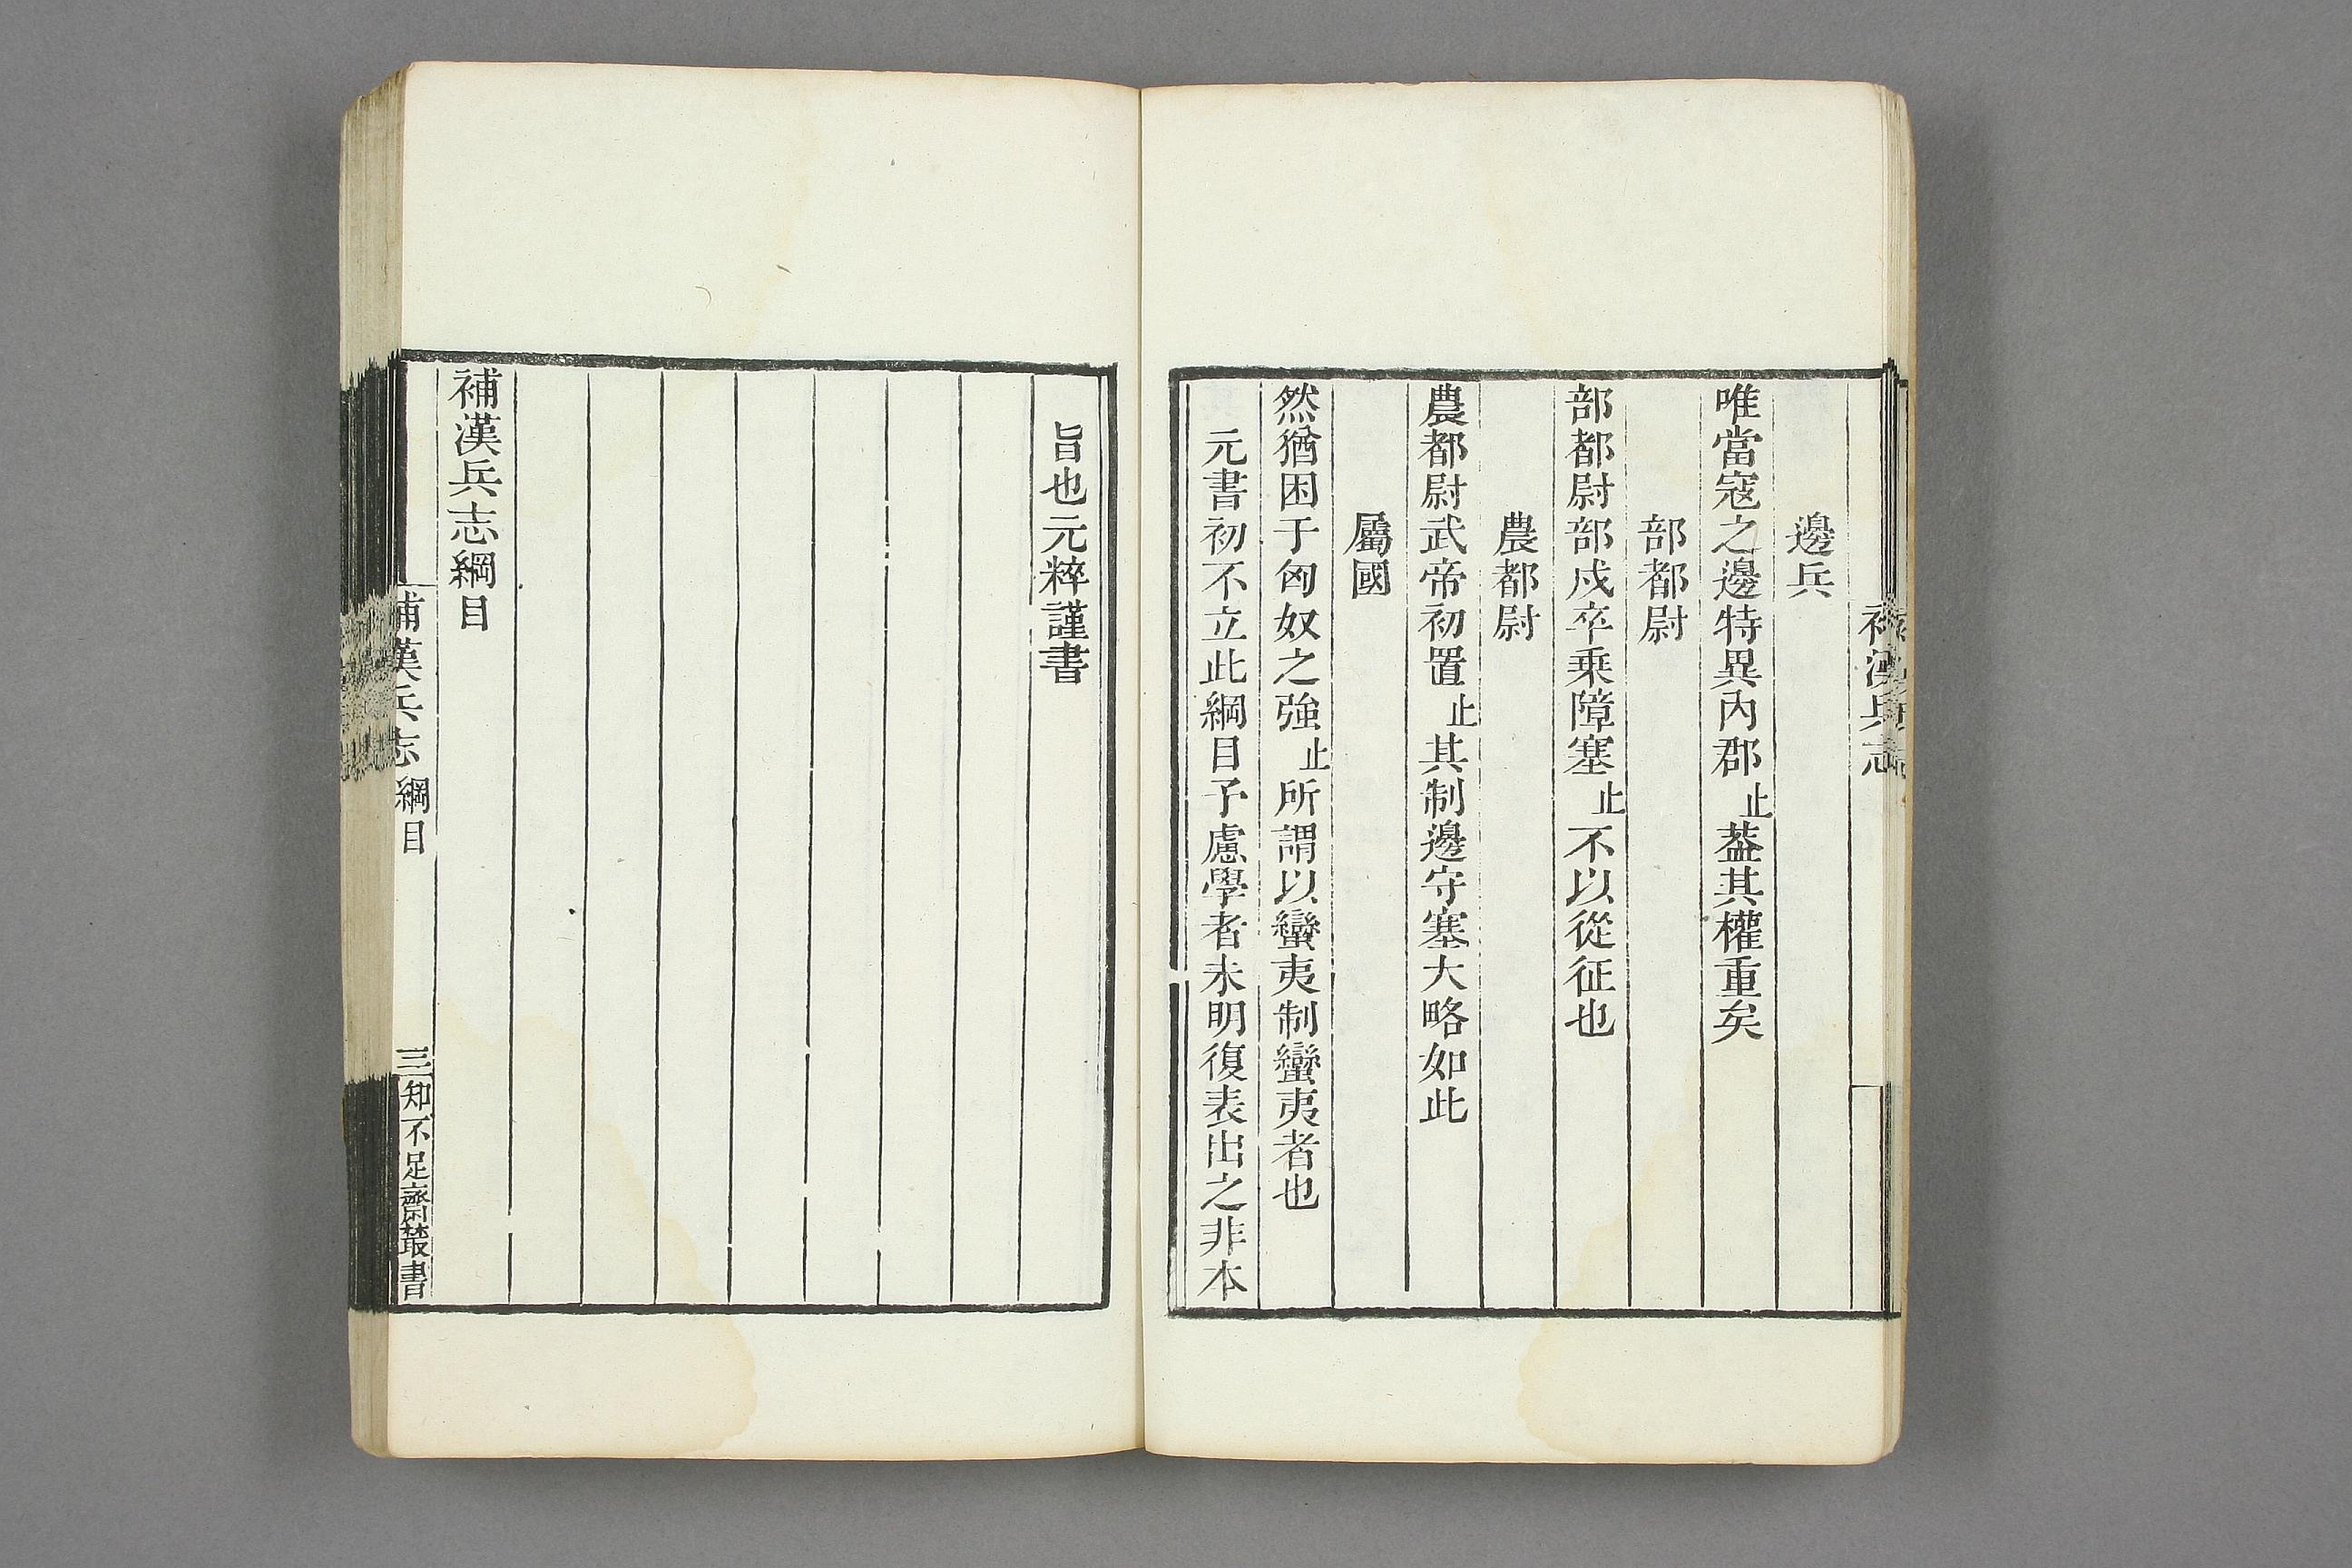 補漢兵志
邊兵
唯當寇之邊特異內郡止葢其權重矣
部都尉
部都尉部戍卒乗障塞止不以從征也
農都尉
農都尉武帝初置止其制邊守塞大略如此
屬國
然猶困于匈奴之強止所謂以蠻夷制蠻夷者也
元書初不立此綱目予慮學者未明復表出之非本
旨也元粹謹書
補漢兵志綱目
補漢兵志綱目 三 知不足齋叢書